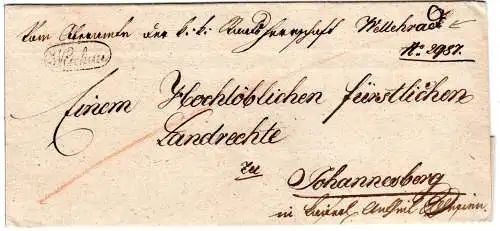 Vom Oberamte der k: k: Staatsherrschaft Wellehrad
No. 2987.
Wischau
Einem Hochlöblichen fürstlichen
Landrechte
zu
Johannesberg
in